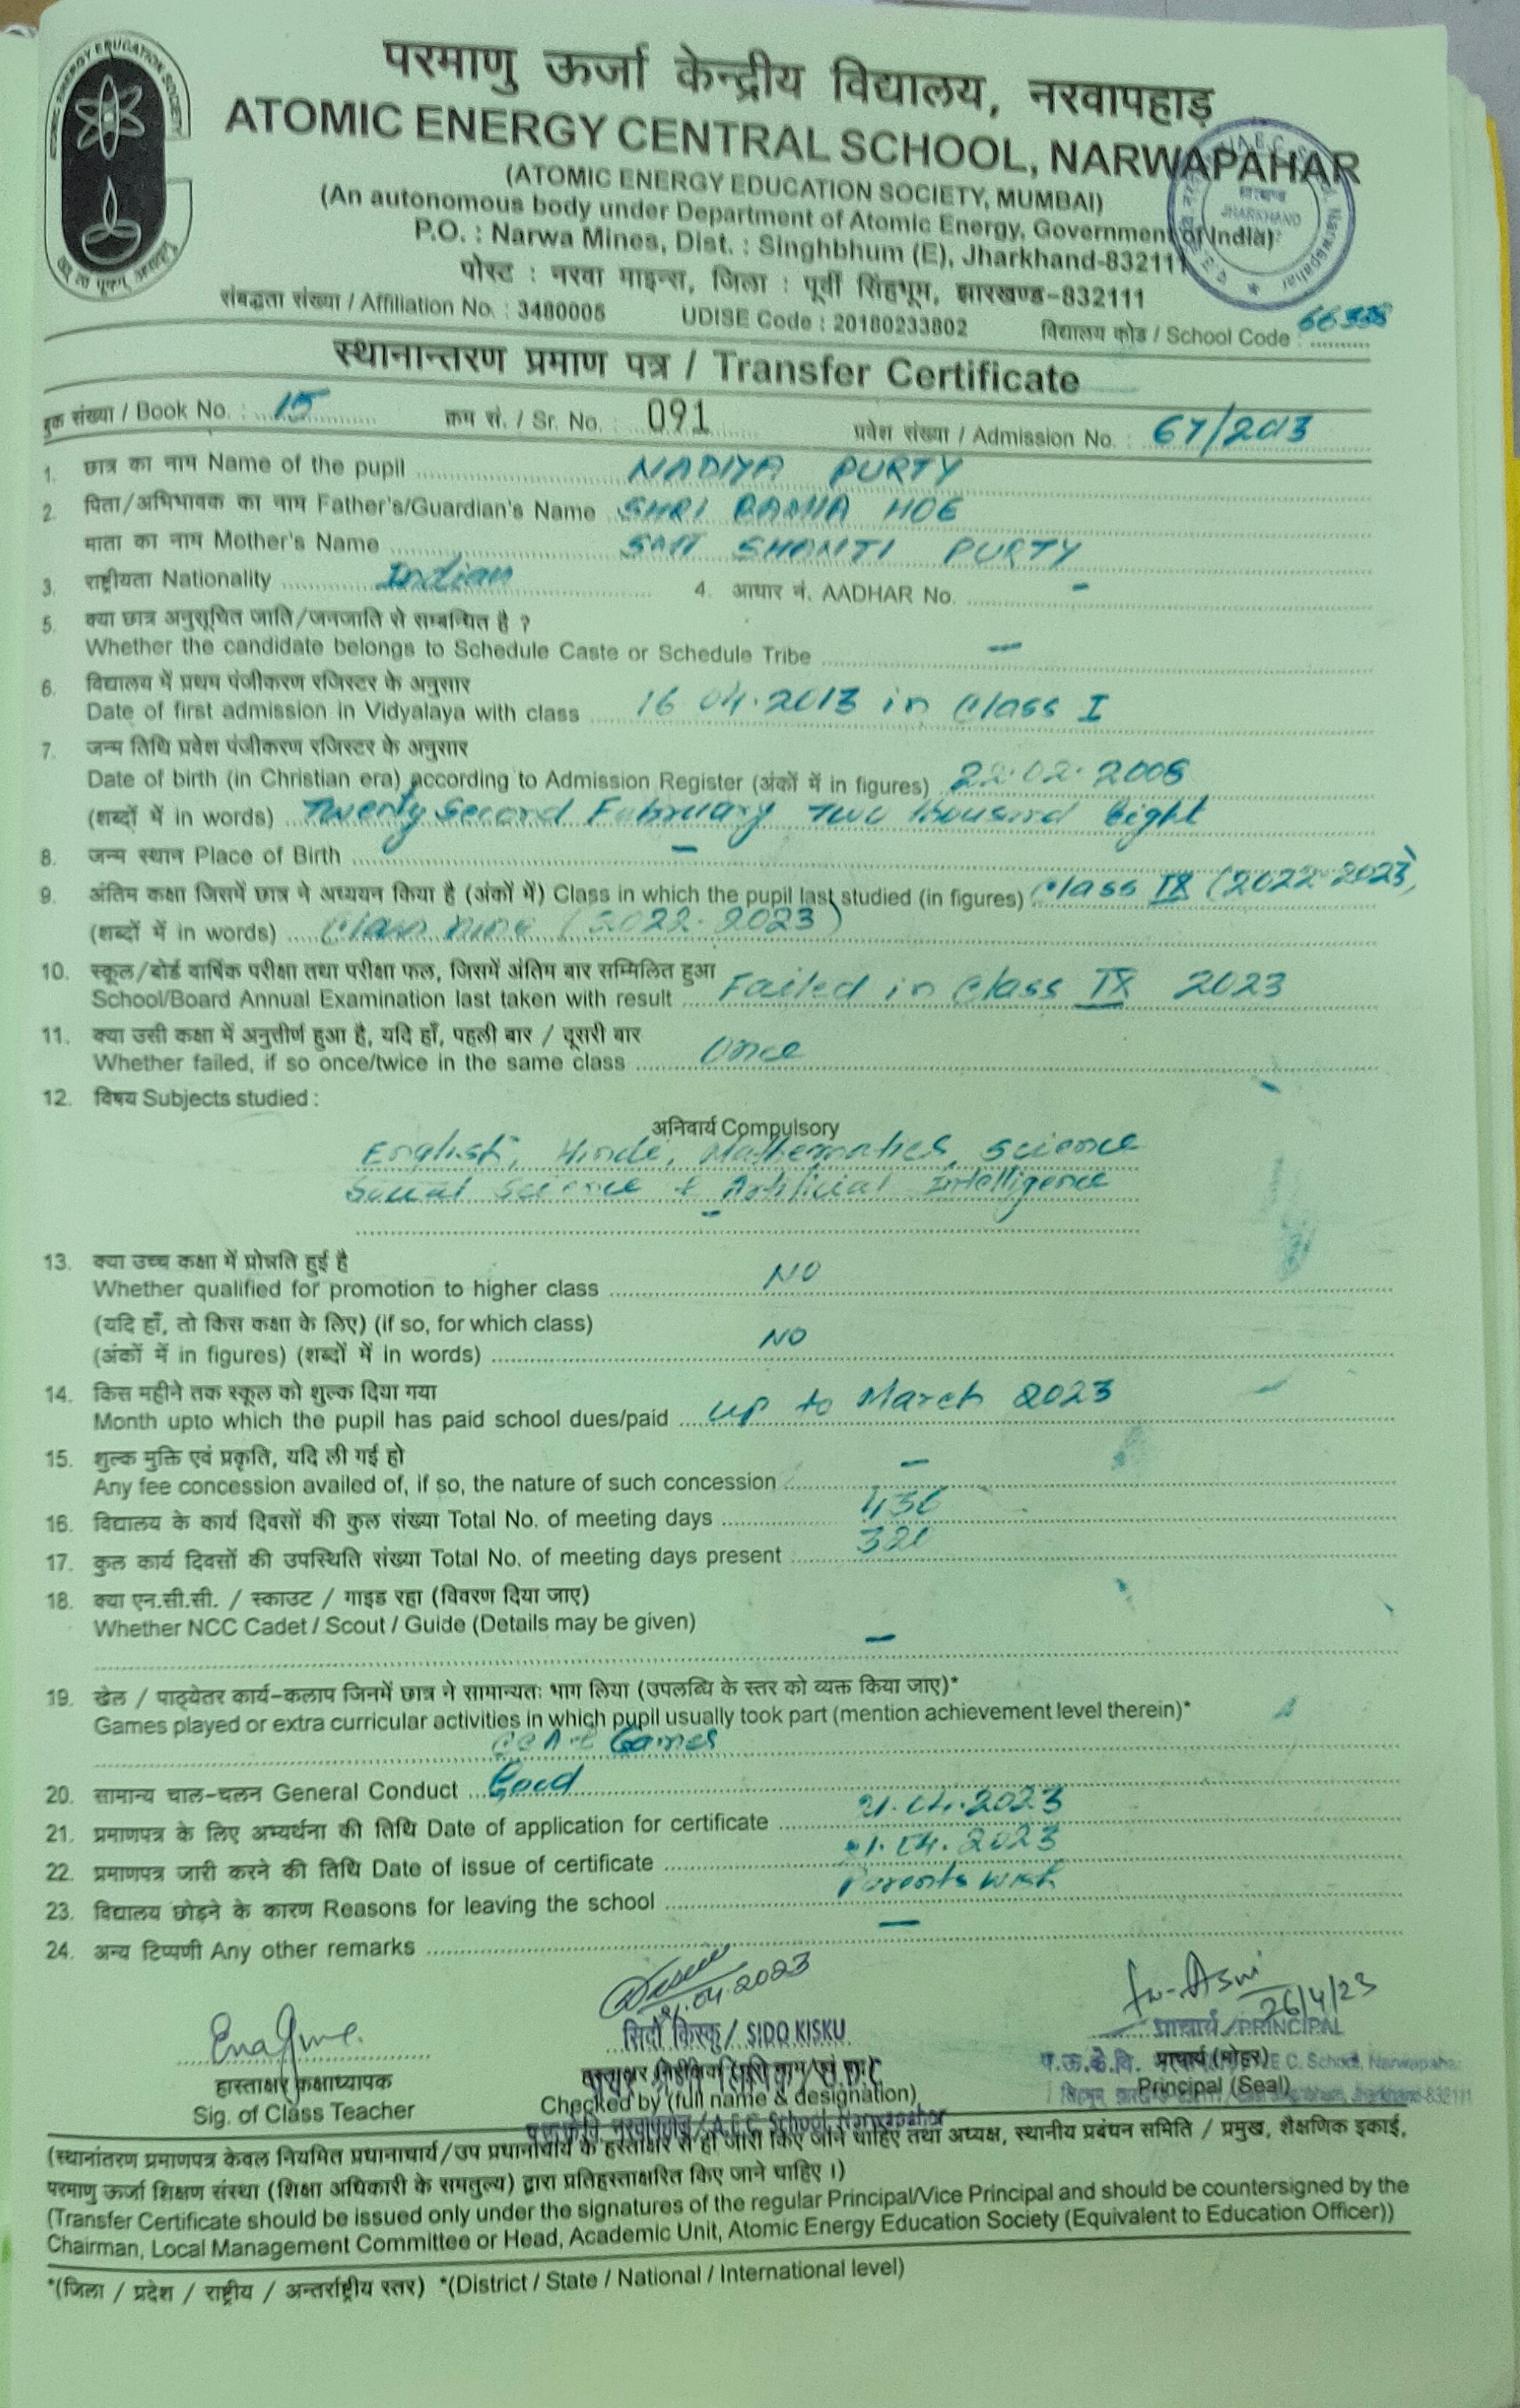 परमाणु ऊर्जा केन्द्रीय विद्यालय, नरवापहाड़
ATOMIC ENERGY CENTRAL SCHOOL, NARWAPAHAR
(ATOMIC ENERGY EDUCATION SOCIETY, MUMBAI)
(An autonomous body under Department of Atomic Energy, Government of India)
P.O. : Narwa Mines, Dist. : Singhbhum (E), Jharkhand-832111
पोस्ट : नरवा माइन्स, जिला : पूर्वी सिंहभूम, झारखण्ड-832111
संबद्धता संख्या / Affiliation No. : 3480005 UDISE Code : 20180233802 विद्यालय कोड / School Code :
स्थानान्तरण प्रमाण पत्र / Transfer Certificate
बुक संख्या / Book No. : 15 क्रम सं. / Sr. No. : 091 प्रवेश संख्या / Admission No. : 67/2013
1. छात्र का नाम Name of the pupil NADIYA PURTY
2. पिता/अभिभावक का नाम Father's/Guardian's Name SHRI HOE
माता का नाम Mother's Name SMT SHANTI PURTY
3. राष्ट्रीयता Nationality Indian 4. आधार नं. AADHAR No. -
5. क्या छात्र अनुसूचित जाति/जनजाति से सम्बन्धित है ?
Whether the candidate belongs to Schedule Caste or Schedule Tribe —
6. विद्यालय में प्रथम पंजीकरण रजिस्टर के अनुसार
Date of first admission in Vidyalaya with class 16 04.2013 in Class I
7. जन्म तिथि प्रवेश पंजीकरण रजिस्टर के अनुसार
Date of birth (in Christian era) according to Admission Register (अंकों में in figures) 22.02.2008
(शब्दों में in words) Twenty Second February Two thousand Eight
8. जन्म स्थान Place of Birth —
9. अंतिम कक्षा जिसमें छात्र ने अध्ययन किया है (अंकों में) Class in which the pupil last studied (in figures) Class IX (2022-2023)
(शब्दों में in words) Class nine (2022-2023)
10. स्कूल/बोर्ड वार्षिक परीक्षा तथा परीक्षा फल, जिसमें अंतिम बार सम्मिलित हुआ
School/Board Annual Examination last taken with result Failed in Class IX 2023
11. क्या उसी कक्षा में अनुत्तीर्ण हुआ है, यदि हाँ, पहली बार / दूसरी बार
Whether failed, if so once/twice in the same class Once
12. विषय Subjects studied :
अनिवार्य Compulsory
English, Hindi, Mathematics, Science
Social Science & Artificial Intelligence
-
13. क्या उच्च कक्षा में प्रोन्नति हुई है
Whether qualified for promotion to higher class NO
(यदि हाँ, तो किस कक्षा के लिए) (if so, for which class)
(अंकों में in figures) (शब्दों में in words) NO
14. किस महीने तक स्कूल को शुल्क दिया गया
Month upto which the pupil has paid school dues/paid up to March 2023
15. शुल्क मुक्ति एवं प्रकृति, यदि ली गई हो
Any fee concession availed of, if so, the nature of such concession —
16. विद्यालय के कार्य दिवसों की कुल संख्या Total No. of meeting days
17. कुल कार्य दिवसों की उपस्थिति संख्या Total No. of meeting days present
18. क्या एन.सी.सी. / स्काउट / गाइड रहा (विवरण दिया जाए)
Whether NCC Cadet / Scout / Guide (Details may be given) —
19. खेल / पाठ्येतर कार्य-कलाप जिनमें छात्र ने सामान्यतः भाग लिया (उपलब्धि के स्तर को व्यक्त किया जाए)*
Games played or extra curricular activities in which pupil usually took part (mention achievement level therein)*
Games
20. सामान्य चाल-चलन General Conduct Good
21. प्रमाणपत्र के लिए अभ्यर्थना की तिथि Date of application for certificate 21.04.2023
22. प्रमाणपत्र जारी करने की तिथि Date of issue of certificate 21.04.2023
23. विद्यालय छोड़ने के कारण Reasons for leaving the school Parents wish
24. अन्य टिप्पणी Any other remarks —
21.04.2023 26/4/23
सिदो किस्कू / SIDO KISKU प्राचार्य / PRINCIPAL
हास्ताक्षर कक्षाध्यापक प्राचार्य (मोहर)
Sig. of Class Teacher Checked by (full name & designation) Principal (Seal)
(स्थानांतरण प्रमाणपत्र केवल नियमित प्रधानाचार्य/उप प्रधानाचार्य के हस्ताक्षर से ही जारी किए जाने चाहिए तथा अध्यक्ष, स्थानीय प्रबंधन समिति / प्रमुख, शैक्षणिक इकाई,
परमाणु ऊर्जा शिक्षण संस्था (शिक्षा अधिकारी के समतुल्य) द्वारा प्रतिहस्ताक्षरित किए जाने चाहिए ।)
(Transfer Certificate should be issued only under the signatures of the regular Principal/Vice Principal and should be countersigned by the
Chairman, Local Management Committee or Head, Academic Unit, Atomic Energy Education Society (Equivalent to Education Officer))
*(जिला / प्रदेश / राष्ट्रीय / अन्तर्राष्ट्रीय स्तर) *(District / State / National / International level)